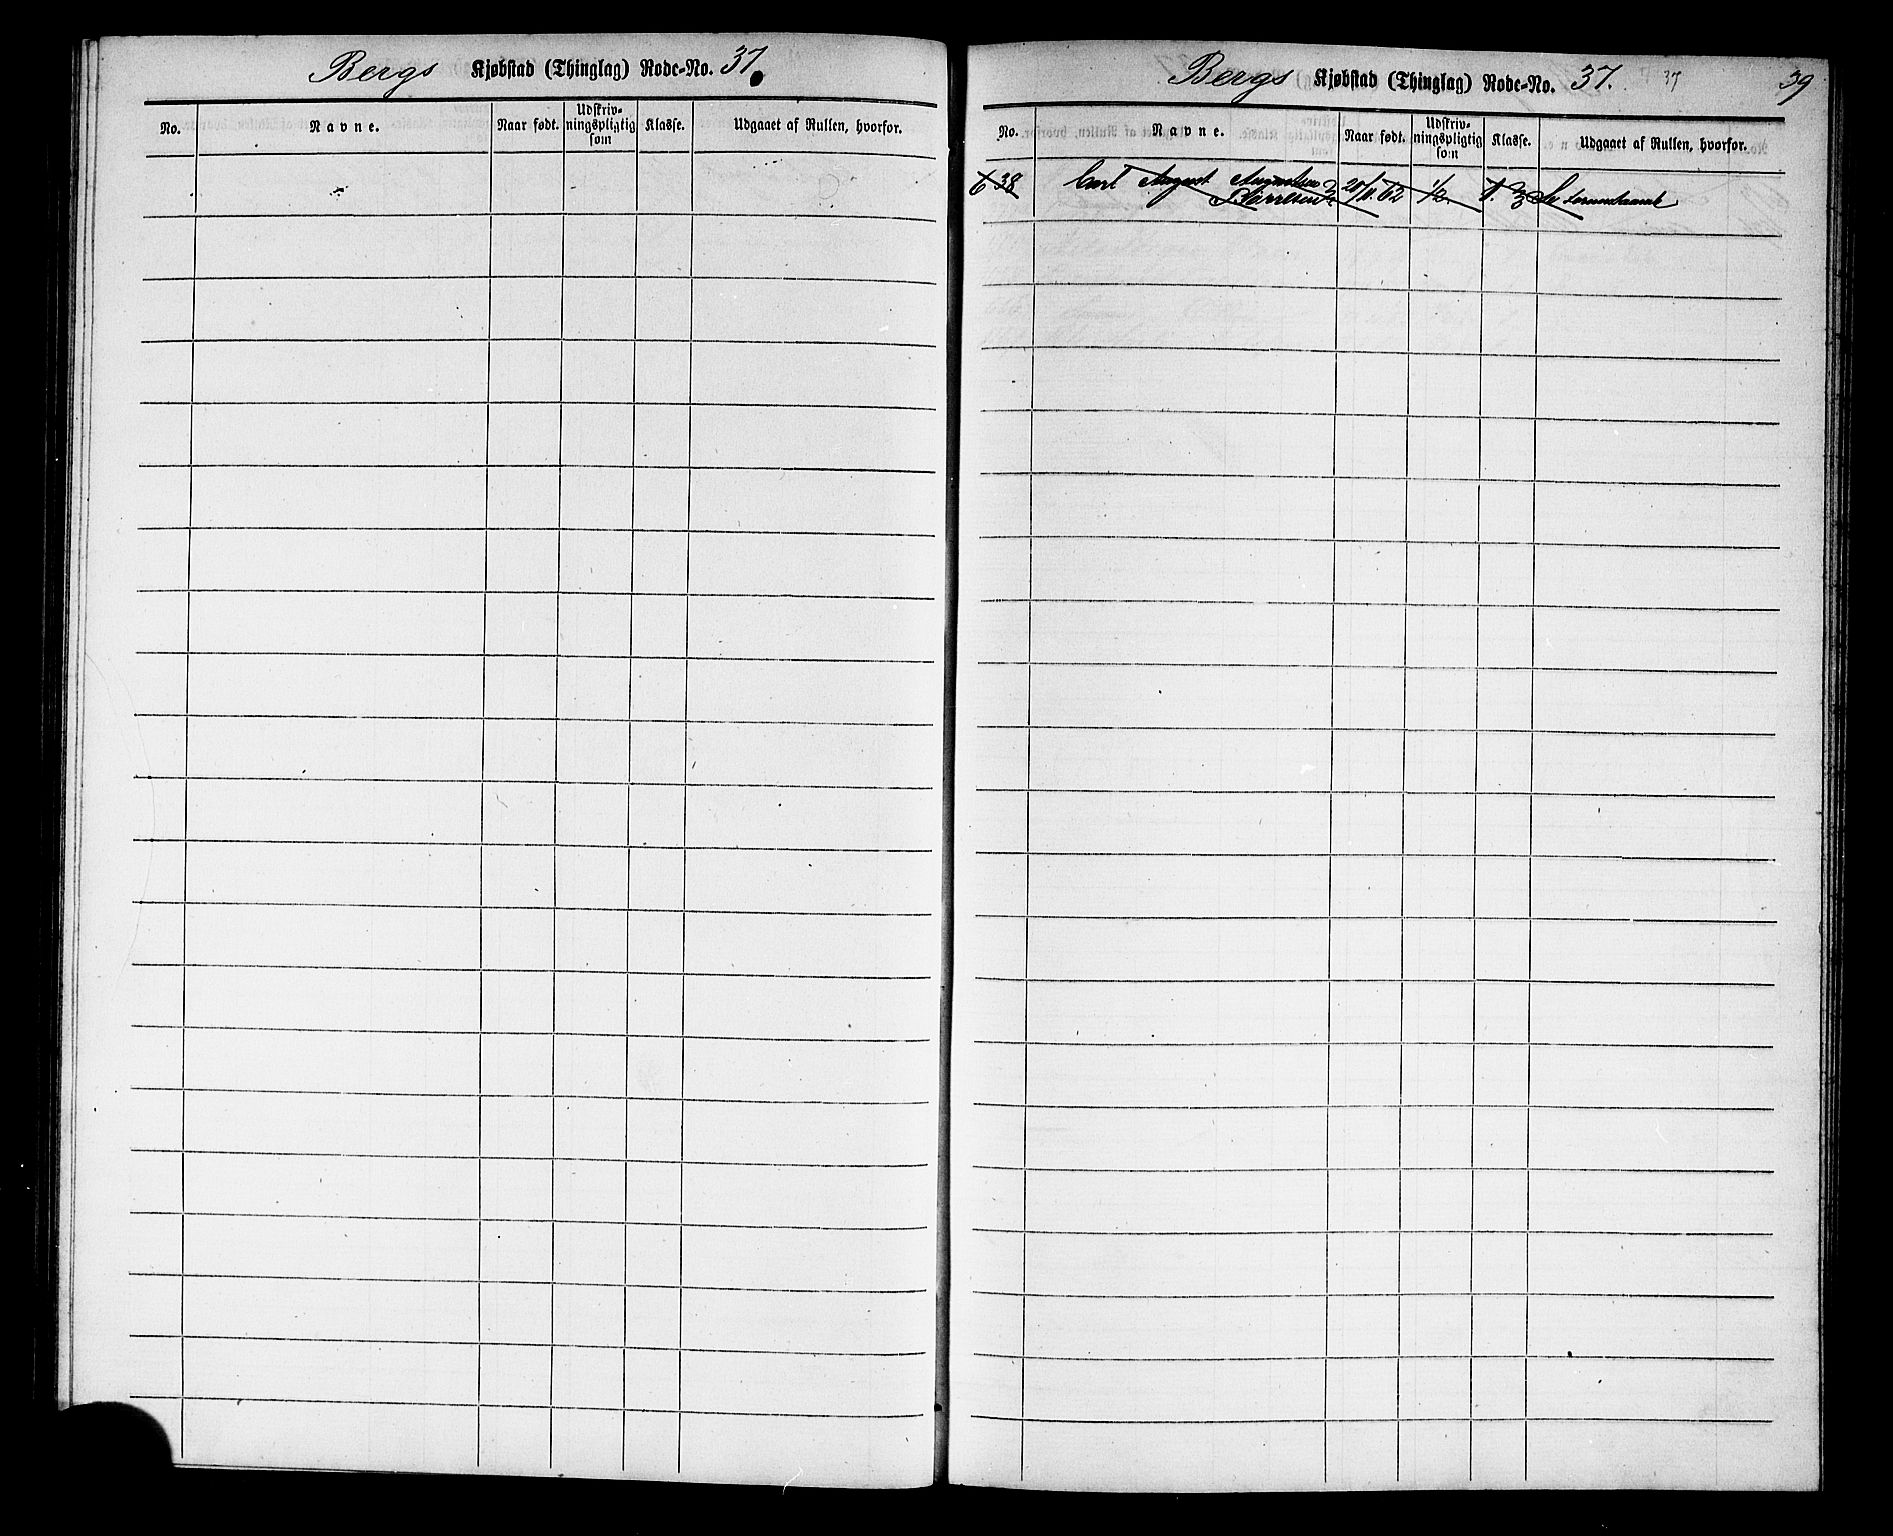 Bergs Kjøbstad (Thinglag) Rode-No. 37.
No. Navne. Naar født. Udskriv-ningspligtig som Klasse. Udgaaet af Rullen, hvorfor.
Bergs Kjøbstad (Thinglag) Rode-No. 37. 37 39
No. Navne. Naar født. Udskriv-ningspligtig som Klasse. Udgaaet af Rullen, hvorfor.
638 Carl August Augustsen 20/11.62 1/2.
Børresen